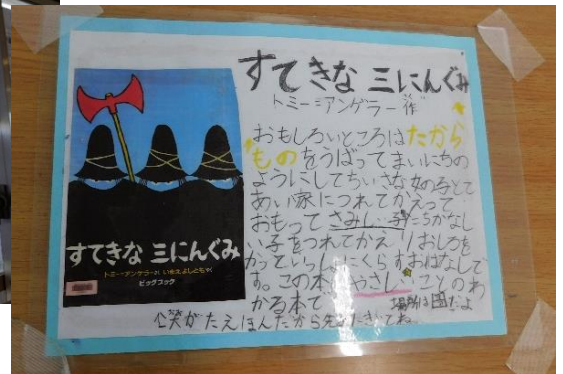 すてきな 三にんぐみ
トミー＝アンゲラー 作
おもしろいところはたから
ものをうばってまいにちの
ようにしてちいさな女の子とで
あい家につれてかえって
おもってさみしい子たちがなし
い子をつれてかえりおしろを
かっていっしょにくらすおはなしで
す。この本はやさしいことのわ
かる本で
場所は図だよ
すてきな 三にんぐみ
トミー＝アンゲラーさく いまえよしともやく
ビッグブック